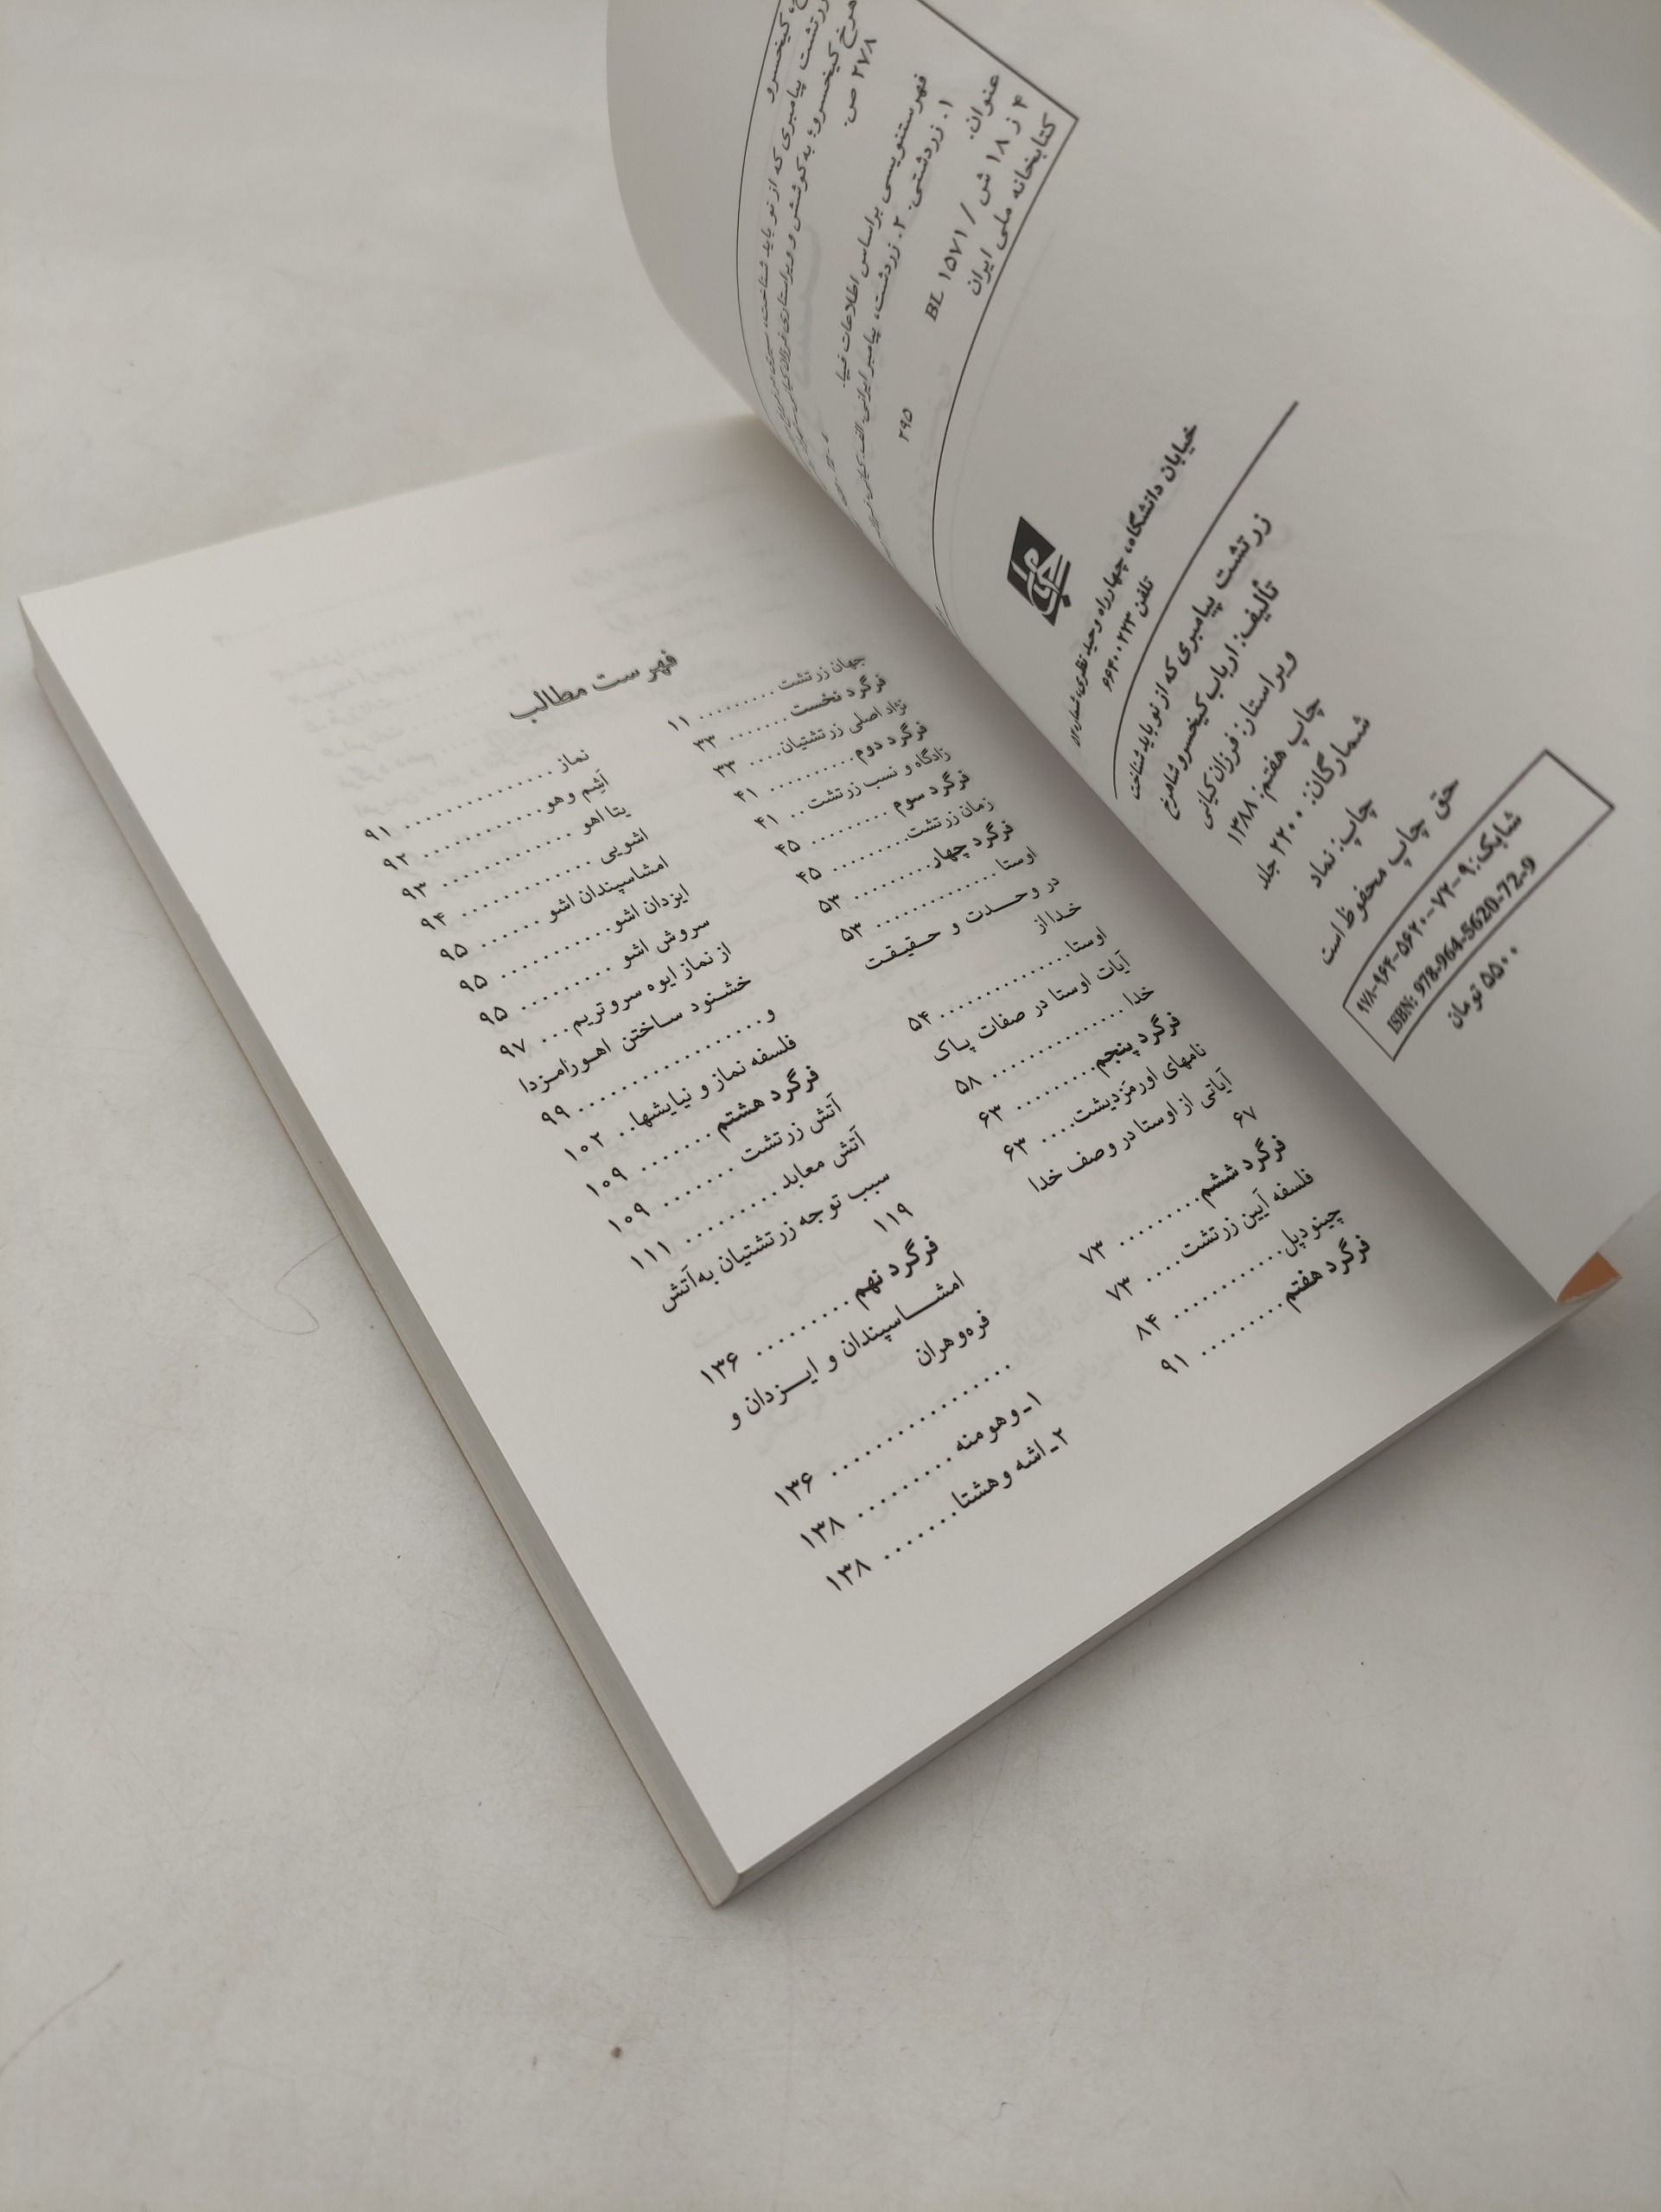 کیخسرو
زرتشت پیامبری که از نو باید شناخت
کیخسرو؛ به کوشش و ویراستاری فرزان کیانی
۲۷۸ ص.
فهرستنویسی براساس اطلاعات فیپا.
۱. زردشتی. ۲. زردشت، پیامبر ایرانی. الف. کیانی،
عنوان.
۴ ز ۱۸ ش / BL ۱۵۷۱
۲۹۵
کتابخانه ملی ایران
جامی
خیابان دانشگاه، چهارراه وحید نظری، شماره
تلفن ۶۶۴۰۰۲۲۳
زرتشت پیامبری که از نو باید شناخت
تألیف: ارباب کیخسرو شاهرخ
ویراستار: فرزان کیانی
چاپ هفتم: ۱۳۸۸
شمارگان: ۲۲۰۰ جلد
چاپ: نماد
حق چاپ محفوظ است
شابک: ۹-۷۲-۵۶۲۰-۹۶۴-۹۷۸
ISBN: 978-964-5620-72-9
۵۵۰۰ تومان
فهرست مطالب
جهان زرتشت .......... ۱۱
فرگرد نخست ....... ۳۳
نژاد اصلی زرتشتیان .... ۳۳
فرگرد دوم ........... ۴۱
زادگاه و نسب زرتشت .. ۴۱
فرگرد سوم .......... ۴۵
زمان زرتشت .......... ۴۵
فرگرد چهار .......... ۵۳
اوستا .............. ۵۳
در وحدت و حقیقت
خدا از
اوستا ................ ۵۴
آیات اوستا در صفات پاک
خدا .............. ۵۸
فرگرد پنجم ......... ۶۳
نامهای اورمَزدیشت .... ۶۳
آیاتی از اوستا در وصف خدا
۶۷
فرگرد ششم ......... ۷۳
فلسفه آیین زرتشت .... ۷۳
چینودپل ............ ۸۴
فرگرد هفتم ......... ۹۱
نماز ............... ۹۱
اَشِم وهو ............. ۹۲
یتا اهو .............. ۹۳
اشویی .............. ۹۴
امشاسپندان اشو ...... ۹۵
ایزدان اشو ............ ۹۵
سروش اشو ......... ۹۵
از نماز ایوه سروتریم ... ۹۷
خشنود ساختن اهورامزدا
و .................. ۹۹
فلسفه نماز و نیایشها .. ۱۰۲
فرگرد هشتم ....... ۱۰۹
آتش زرتشت ....... ۱۰۹
آتش معابد ......... ۱۱۱
سبب توجه زرتشتیان به‌آتش
۱۱۹
فرگرد نهم ......... ۱۳۶
امشاسپندان و ایزدان و
فره‌وهران
................. ۱۳۶
۱ـ وهومنه ......... ۱۳۸
۲ـ اشه وهشتا ....... ۱۳۸